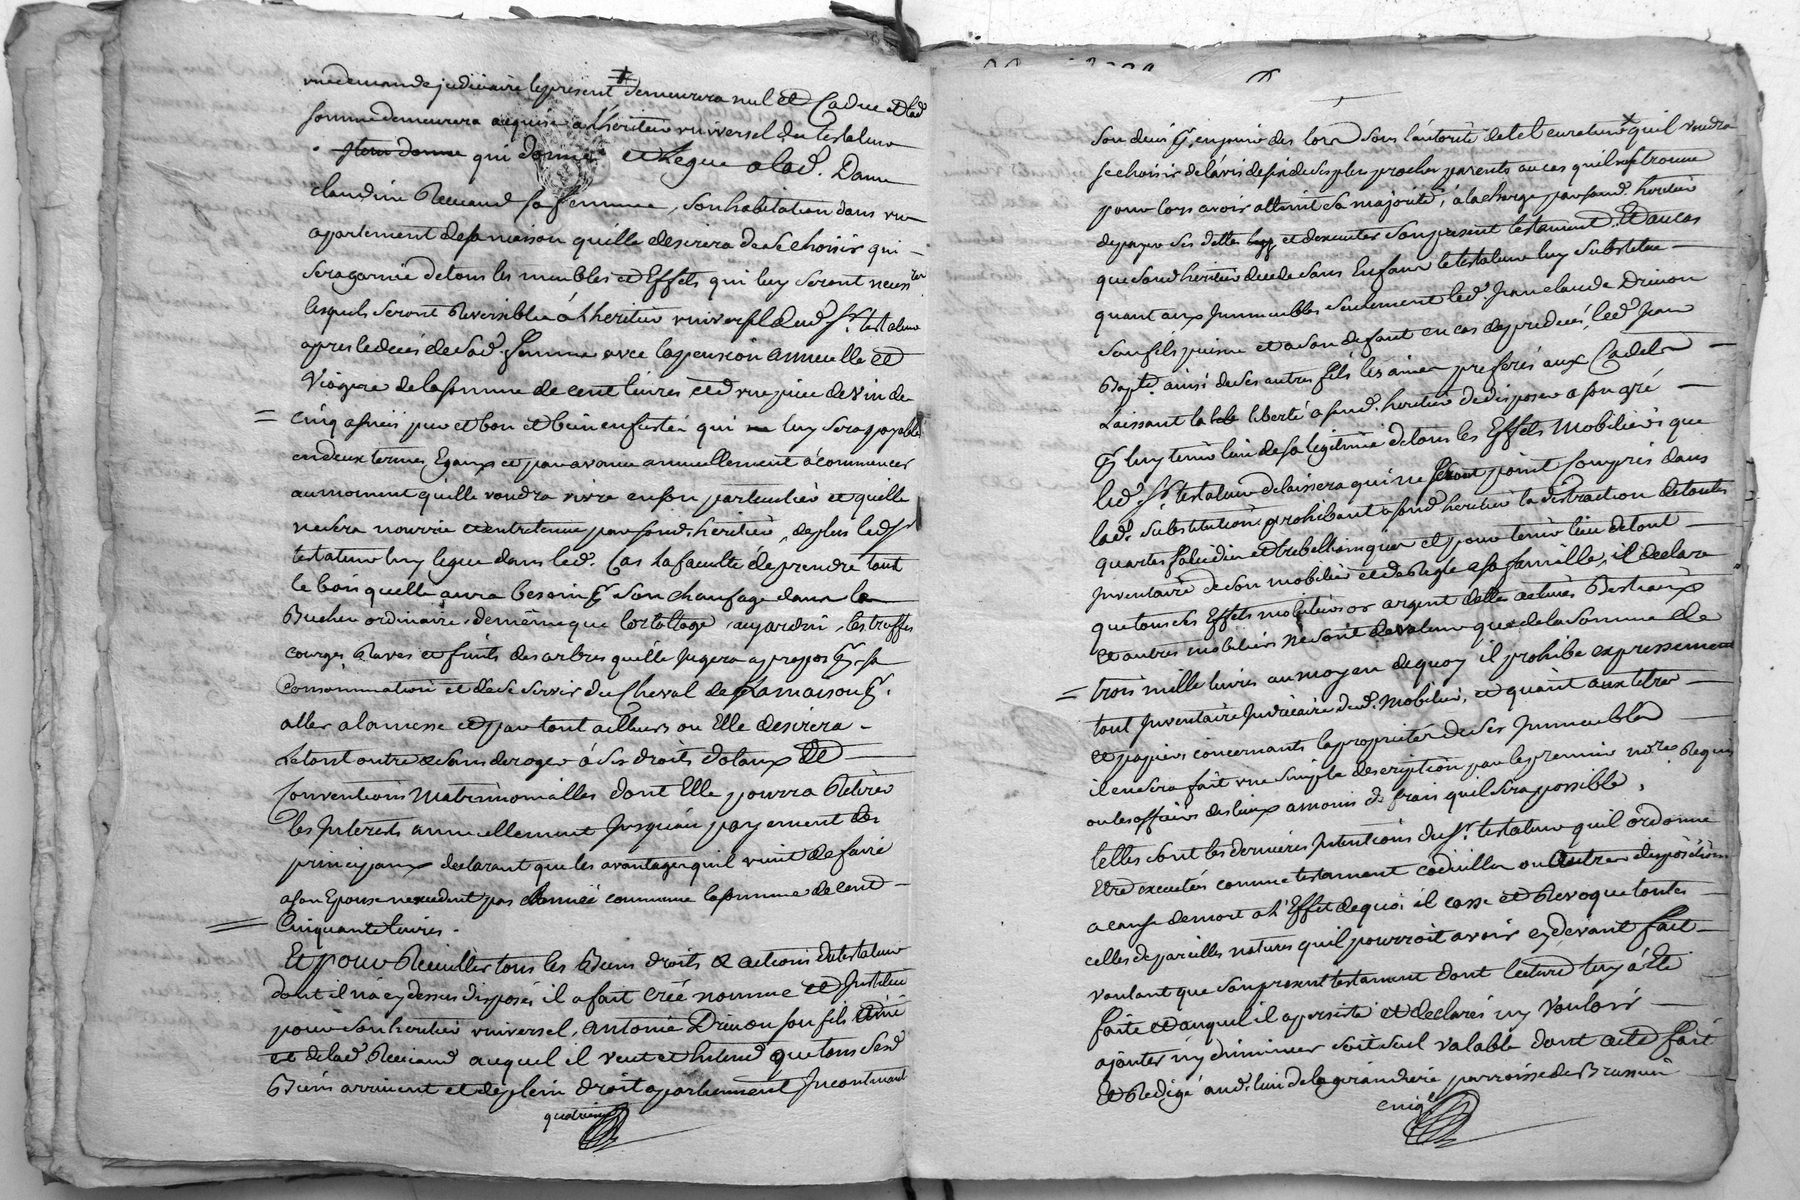 une demande judiciaire le présent ⧧ demeurera nul et Caduc et lad
somme demeurera acquise a lheritier universel du testateur
qui donne et Legue a lad. Dame
claudine Recicaud sa femme, son habitation dans un
apartement de sa maison quelle desirera de se choisir qui –
sera garnie de tous les meubles et Effets qui luy seront necess res
lesquels seront Reversibles á lheritier universel dud. Sr. testateur
apres le deces de Lad. femme avec la pension annuelle et
Viagere de la somme de cent livres et d'une piece de vin de
cinq asnées pur et bon et bien enfustée qui luy sera payable
en deux termes Egaux et par avance annuellement á commencer
au moment quelle voudra vivre en son particulier et quelle
ne sera nourrie et entretenue par sond. heritier, de plus led. Sr
testateur luy legue dans led. Cas la faculté de prendre tout
le bois quelle aura besoin pr. son chaufage dans le
Bucher ordinaire, de même que l'ortollage au jardin, les truffes
courges Raves et fruits des arbres quelle Jugera apropos pr. sa
Consommation et de se servir du Cheval de La maison pr.
aller a la messe et par tout ailleurs ou Elle desirera –
Le tout outre & sans deroger á ses droits dotaux et
conventions Matrimonialles dont Elle pourra Retirer
les Interests annuellement Jusquau payement des
principaux declarant que les avantages quil vient de faire
a son Epouse nexcedent pas année commune la somme de cent –
Cinquante livres.
Et pour Recuillir tous les Biens droits & actions du testateur
dont il na cy dessus disposés il a fait créé nommé et Institué
pour son heritier universel, antoine Drivon son fils ainé
et de lad. Recicaud auquel il veut et entend que tous sesd.
Biens arrivent et de plein droit apartiennent Incontinant
quatrieme
son deces pr. en jouir des lors sous l'autorité de tel curateur × quil voudra
se choisir de l'avis de ses plus proches parents au cas quil ne se trouve
pour lors avoir atteint sa majorité, á la charge par sond. heritier
de payer ses dettes et d'executer son present testament. Et au cas
que sond heritier decede sans Enfans le testateur luy substitue –
quant aux Immeubles seulement led. Jean claude Drivon
son fils puisné et a son defaut en cas de predeces, led. Jean
Bapte. ainsi de ses autres fils les ainés preferés aux Cadets –
Laissant la liberté a sond. heritier de disposer a son gré –
pr. luy tenir lieu de sa legitime de tous les Effets Mobiliers que
led. Sr. testateur delaissera qui ne seront point Compris dans
lad. substitution, prohibant a sond heritier la distraction de toutes
quartes falcidie et trebellianique et pour tenir lieu de tout –
Inventaire de son mobilier et de Regle a sa famille, il declare
que tous ses Effets mobiliers or argent dettes actives Bestiaux
et autres mobiliers ne sont de valeur que de la somme de
trois mille livres au moyen de quoy il prohibe expressement
tout Inventaire Judiciaire dud. Mobilier, et quant aux titres –
et papiers concernants la proprieté de ses Immeubles
il en sera fait une simple description par le premier nore. Requis
ou les officiers des lieux a moins de frais quil sera possible.
telles sont les dernieres Intentions du Sr. testateur quil ordonne
Etre executées comme testament codicille ou Autres dispositions
a cause de mort a l'Effet de quoi il casse et Revoque toutes
celles de pareilles natures quil pourroit avoir cy devant fait –
voulant que son present testament dont lecture luy á Eté
faite et auquel il a persisté et declaré ny Vouloir –
ajouter ny diminuer soit seul valable dont acte fait
Et Redigé aud. lieu de la parroisse de Brussin
cinqe